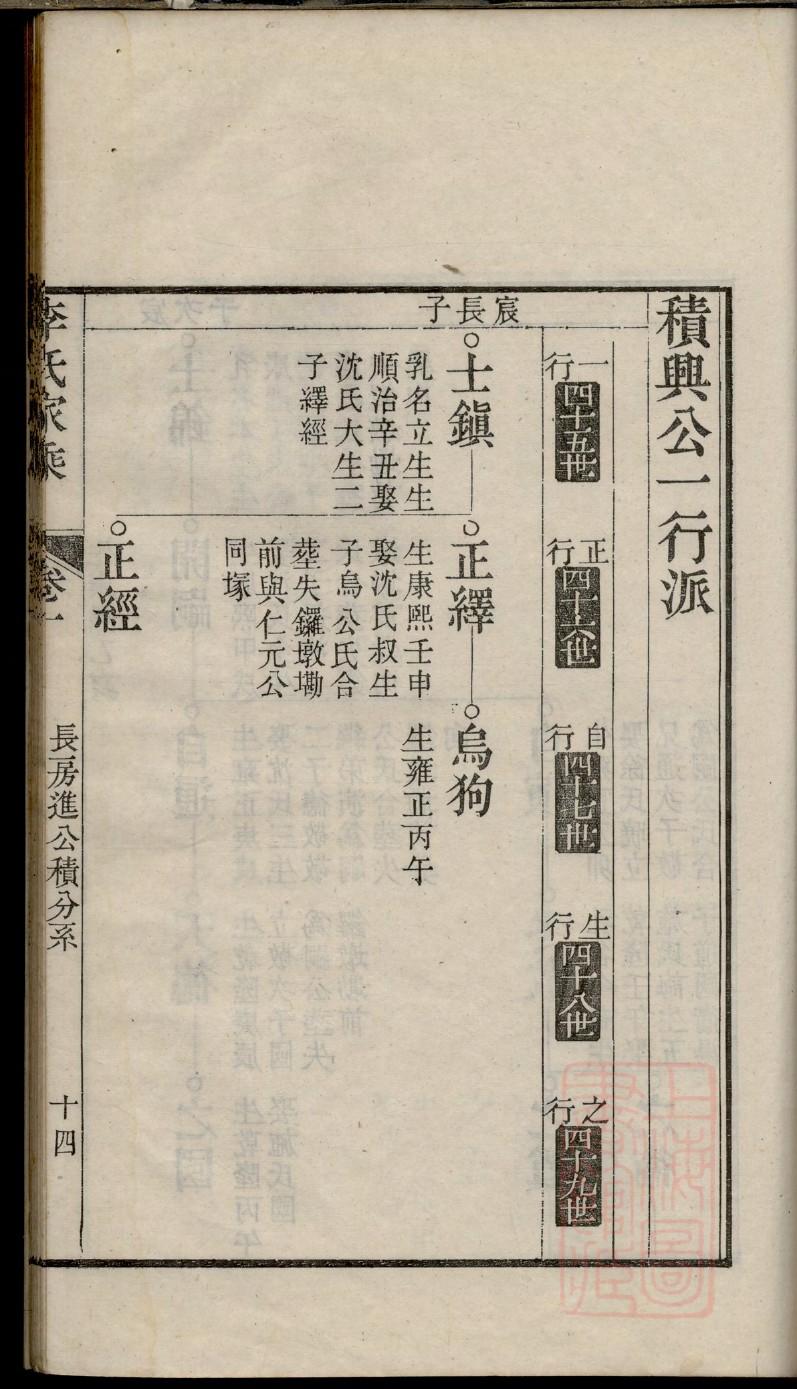 積興公一行派
一行
四十五世
正行
四十六世
自行
四十七世
生行
四十八世
之行
四十九世
宸長子
士鎮
乳名立生生
順治辛丑娶
沈氏大生二
子繹經
正繹
生康熙壬申
娶沈氏叔生
子烏公氏合
塟失鑼墩墈
前與仁元公
同塚
烏狗
生雍正丙午
正經
李氏家乘
卷一
長房進公積分系
十四